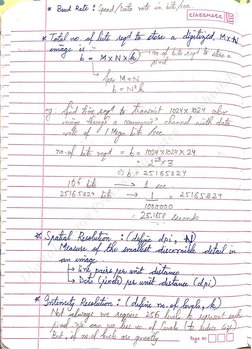 * Baud Rate : Speed/Data rate in bits/sec.
classmate
* Total no. of bits reqd to store a digitized M×N
image is :-
b = M×N×k → no. of bits reqd to store a
pixel
for M=N
b = N²k
Find time reqd to transmit 1024×1024 color
image through a channel with data
rate of 1 Mbps bits/sec.
no. of bits reqd = b = 1024×1024×24
= 2²³×3
b = 25165824
10⁶ bits → 1 sec
25165824 bits → 1 × 25165824
1000000
= 25.1658 seconds
* Spatial Resolution : (define dpi, N)
Measure of the smallest discernible detail in
an image
↳ Line pairs per unit distance
↳ Dots (pixels) per unit distance (dpi)
* Intensity Resolution : (define no. of levels, k)
Not always we require 256 levels to represent each
pixel. We can use less no. of levels (to reduce size)
But, if no. of levels are greatly
Page no.